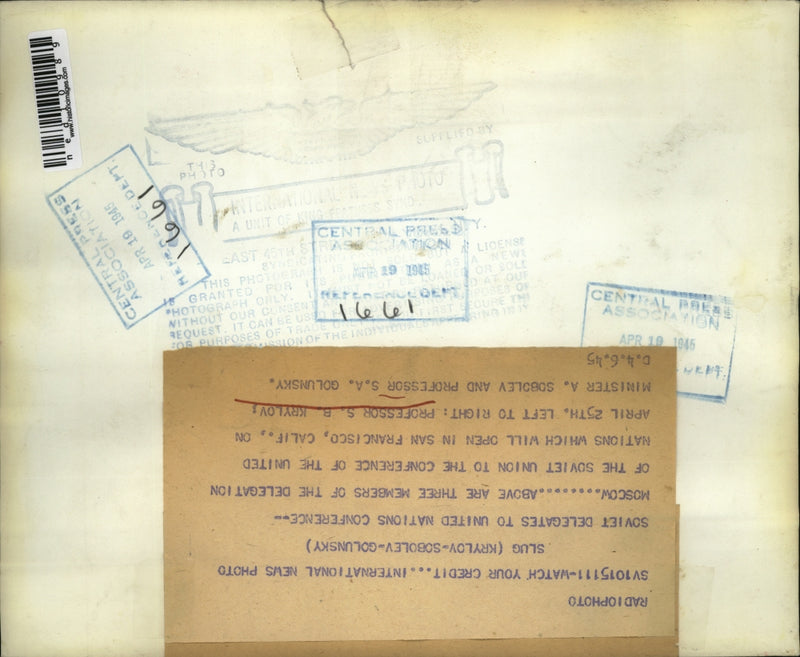 www.historicimages.com
SUPPLIED BY
THIS
PHOTO
INTERNATIONAL NEWS PHOTO
A UNIT OF KING FEATURES SYND.
CENTRAL PRESS
ASSOCIATION
APR 19 1945
REFERENCE DEPT.
1661
CENTRAL PRESS
ASSOCIATION
APR 19 1945
REFERENCE DEPT.
1661
CENTRAL PRESS
ASSOCIATION
APR 19 1945
DEPT.
EAST 45TH
LICENSE
THIS PHOTOGRAPH IS
AS A NEWS
GRANTED FOR
OR SOLD
PHOTOGRAPH ONLY.
AT OUR
WITHOUT OUR CONSENT
REQUEST. IT CAN BE USED
FOR PURPOSES OF TRADE
FIRST
OF THE INDIVIDUALS APPEARING IN IT
RADIOPHOTO
SV1015111-WATCH YOUR CREDIT...INTERNATIONAL NEWS PHOTO
SLUG (KRYLOV-SOBOLEV-GOLUNSKY)
SOVIET DELEGATES TO UNITED NATIONS CONFERENCE--
MOSCOW.........ABOVE ARE THREE MEMBERS OF THE DELEGATION
OF THE SOVIET UNION TO THE CONFERENCE OF THE UNITED
NATIONS WHICH WILL OPEN IN SAN FRANCISCO, CALIF., ON
APRIL 25TH. LEFT TO RIGHT: PROFESSOR S. B. KRYLOV;
MINISTER A. SOBOLEV AND PROFESSOR S.A. GOLUNSKY.
D.4.6.45